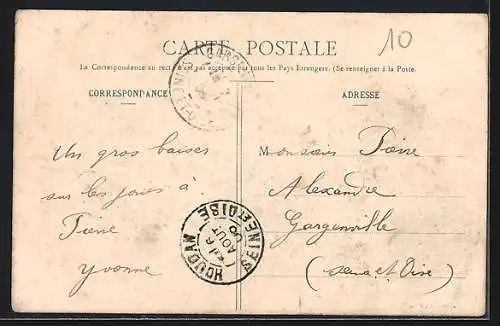 CARTE POSTALE
10
La Correspondance au recto n'est pas acceptée par tous les Pays Etrangers. (Se renseigner à la Poste.
CORRESPONDANCE
Un gros baiser
sur les joues à
Yvonne
ADRESSE
Monsieur
Alexandre
Gargenville
(Seine et Oise)
HOUDAN
AOUT
SEINE ET OISE